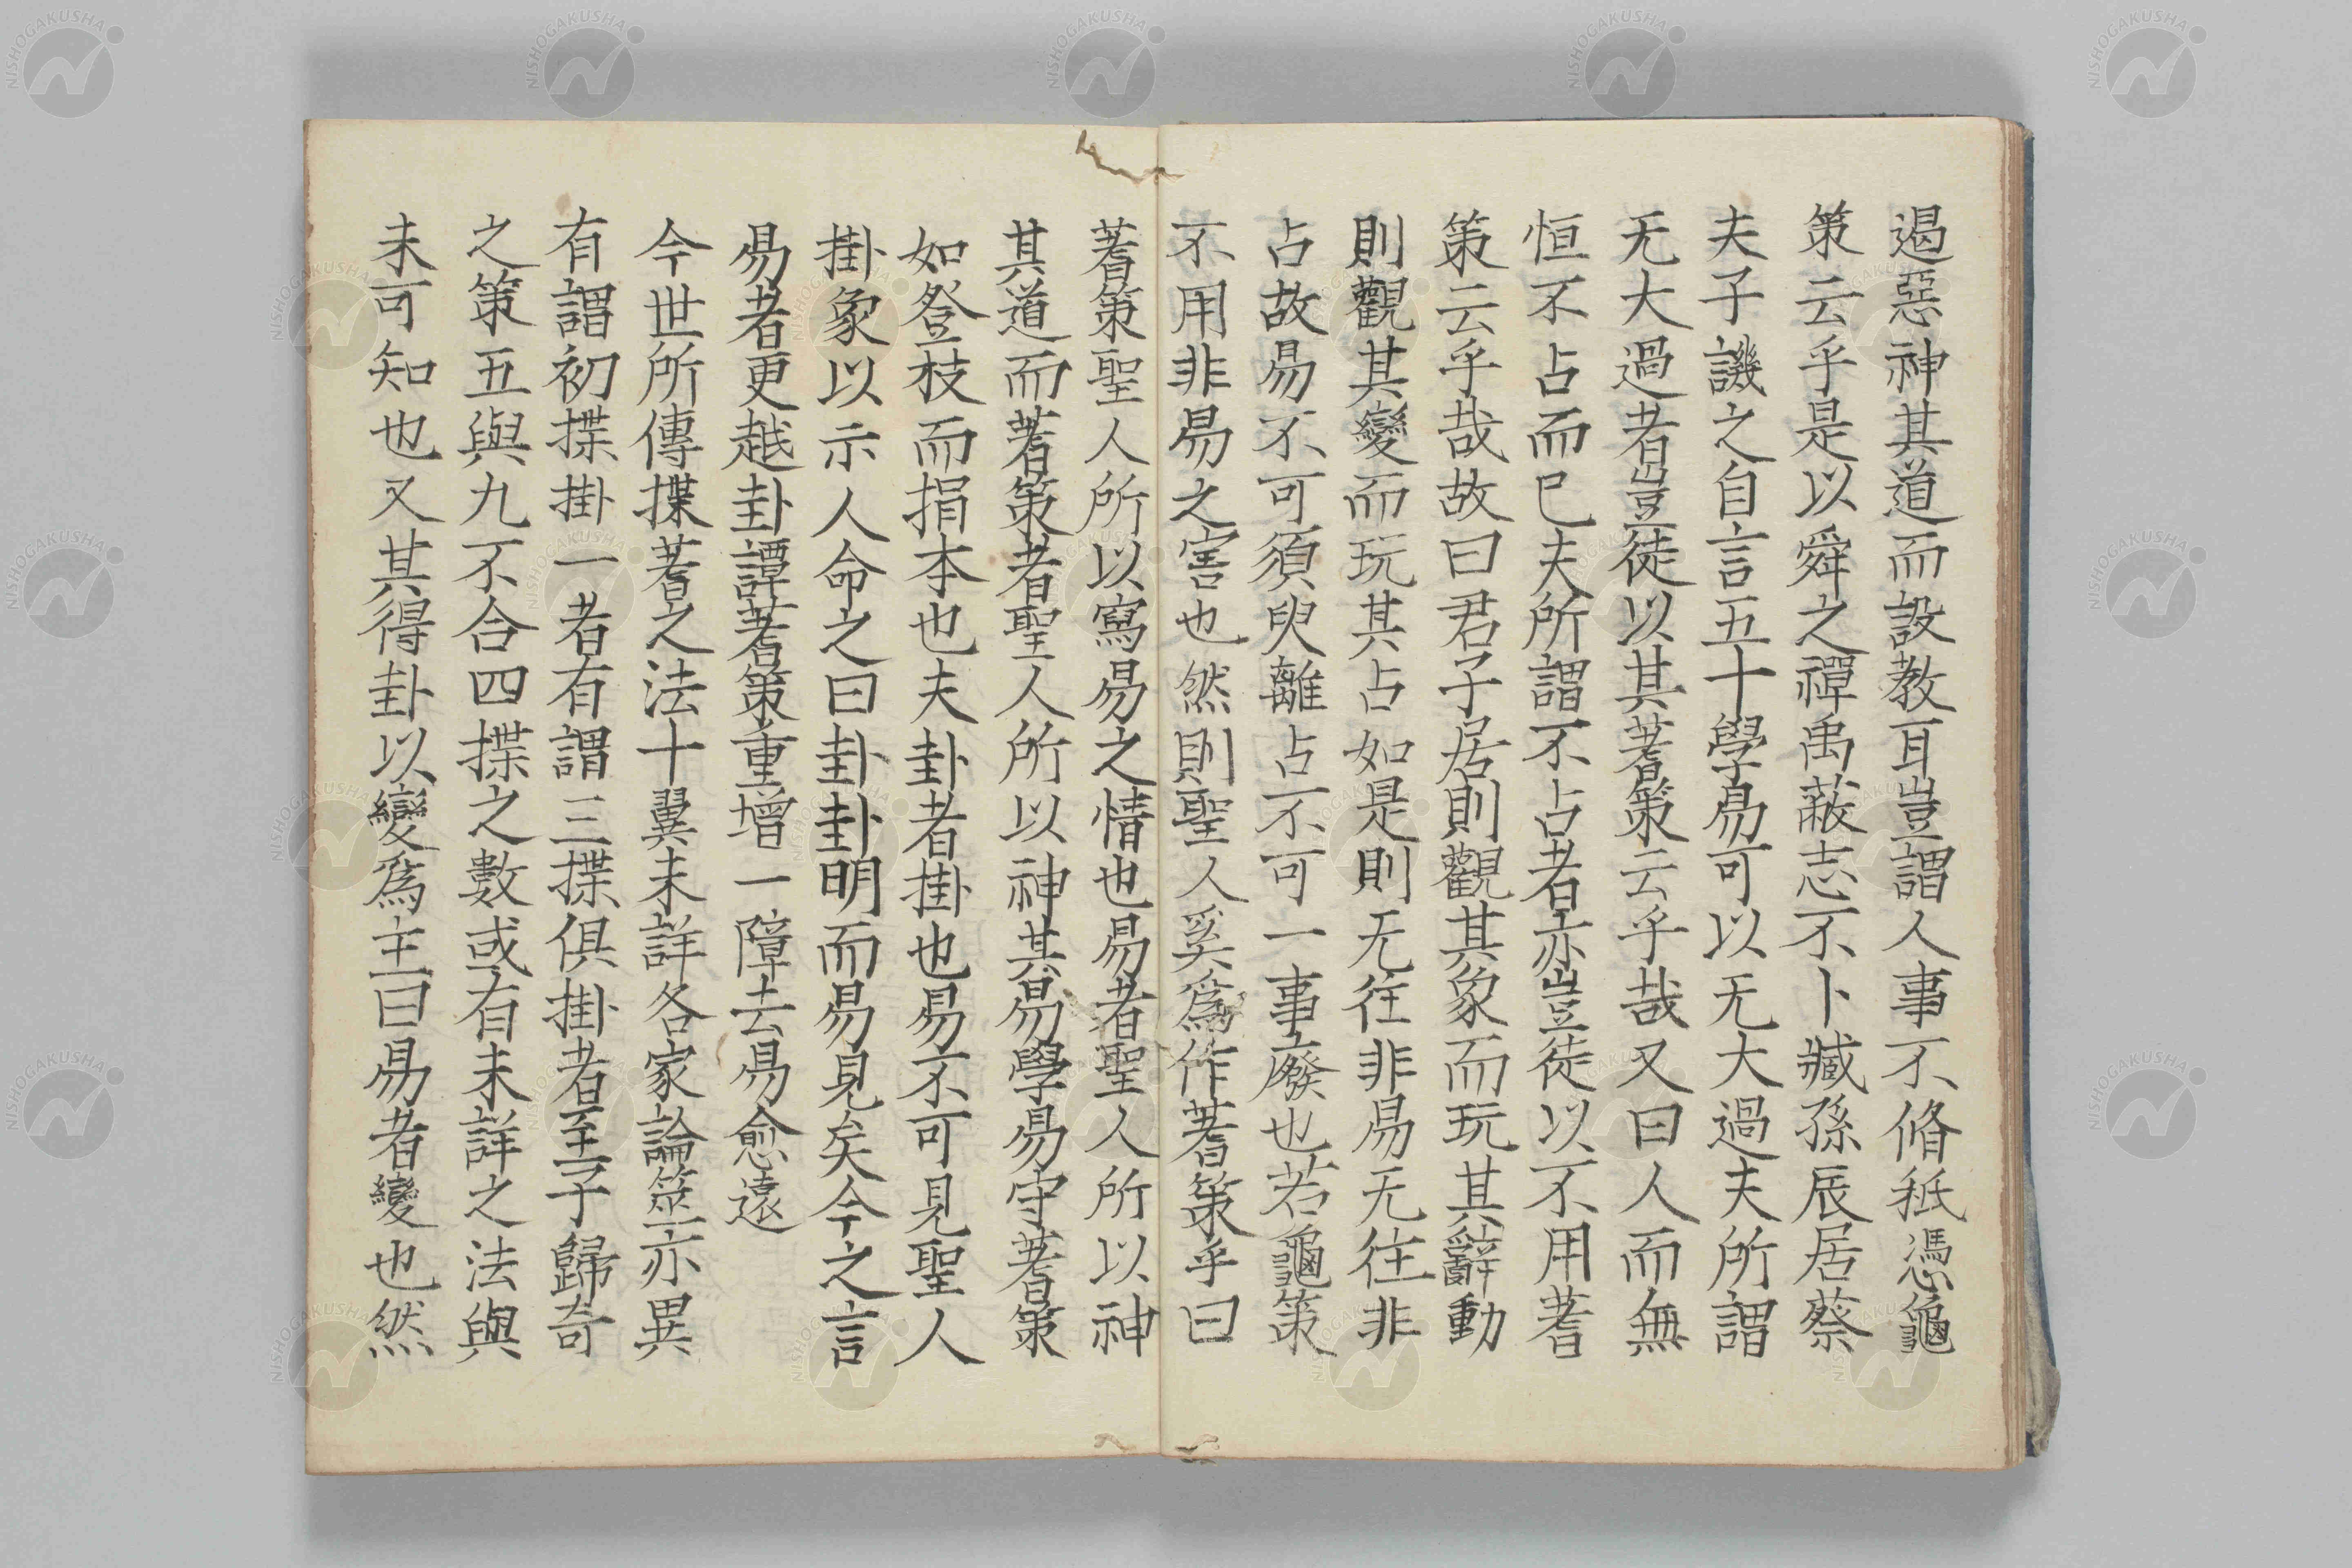 遏惡神其道而設教耳豈謂人事不脩秖憑龜
策云乎是以舜之禪禹蔽志不卜臧孫辰居蔡
夫子譏之自言五十學易可以无大過夫所謂
无大過者豈徒以其蓍策云乎哉又曰人而無
恒不占而已夫所謂不占者亦豈徒以不用蓍
策云乎哉故曰君子居則觀其象而玩其辭動
則觀其變而玩其占如是則无往非易无往非
占故易不可須臾離占不可一事廢也若龜策
不用非易之害也然則聖人奚爲作蓍策乎曰
蓍策聖人所以寫易之情也易者聖人所以神
其道而蓍策者聖人所以神其易學易守蓍策
如登枝而捐本也夫卦者掛也易不可見聖人
掛象以示人命之曰卦卦明而易見矣今之言
易者更越卦譚蓍策重增一障去易愈遠
今世所傳揲蓍之法十翼未詳各家論筮亦異
有謂初揲掛一者有謂三揲俱掛者至于歸奇
之策五與九不合四揲之數或有未詳之法與
未可知也又其得卦以變爲主曰易者變也然
NISHOGAKUSHA